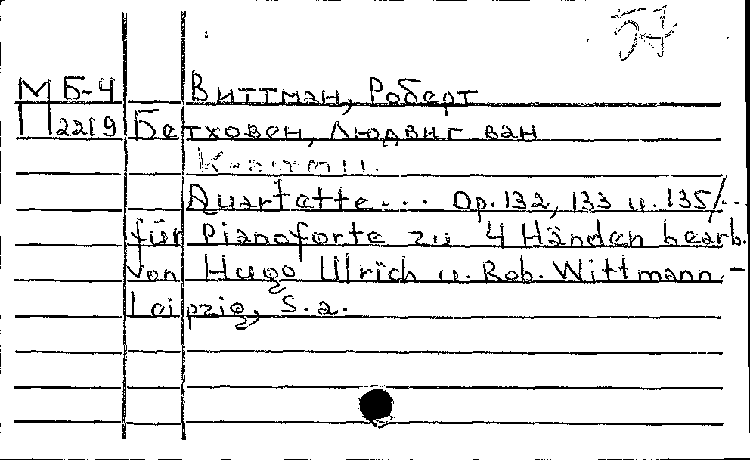 57
М Б-4 Виттман, Роберт
П 2219 Бетховен, Людвиг ван
Quartette... Op. 132, 133 u. 135/...
für Pianoforte zu 4 Händen bearb.
von Hugo Ulrich u. Rob. Wittmann. -
Leipzig, s.a.